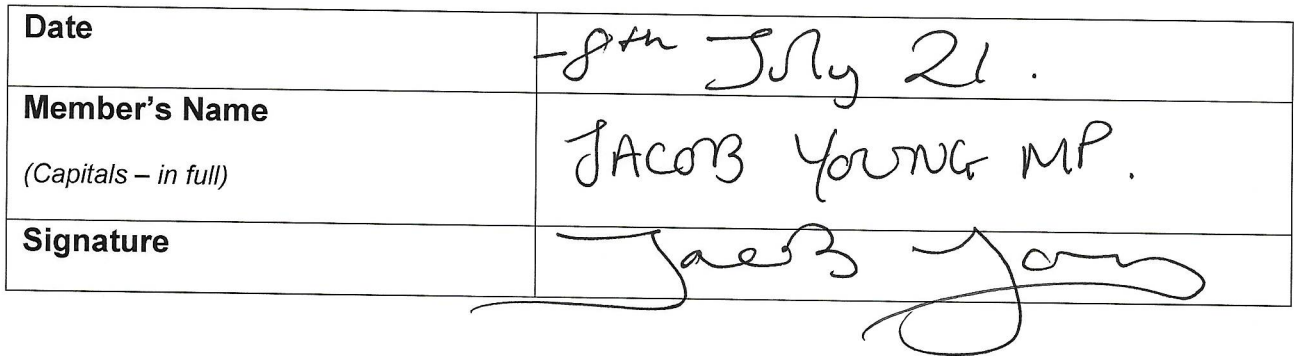 Date
-8th July 21.
Member's Name
(Capitals – in full)
JACOB YOUNG MP.
Signature
Jacob Young